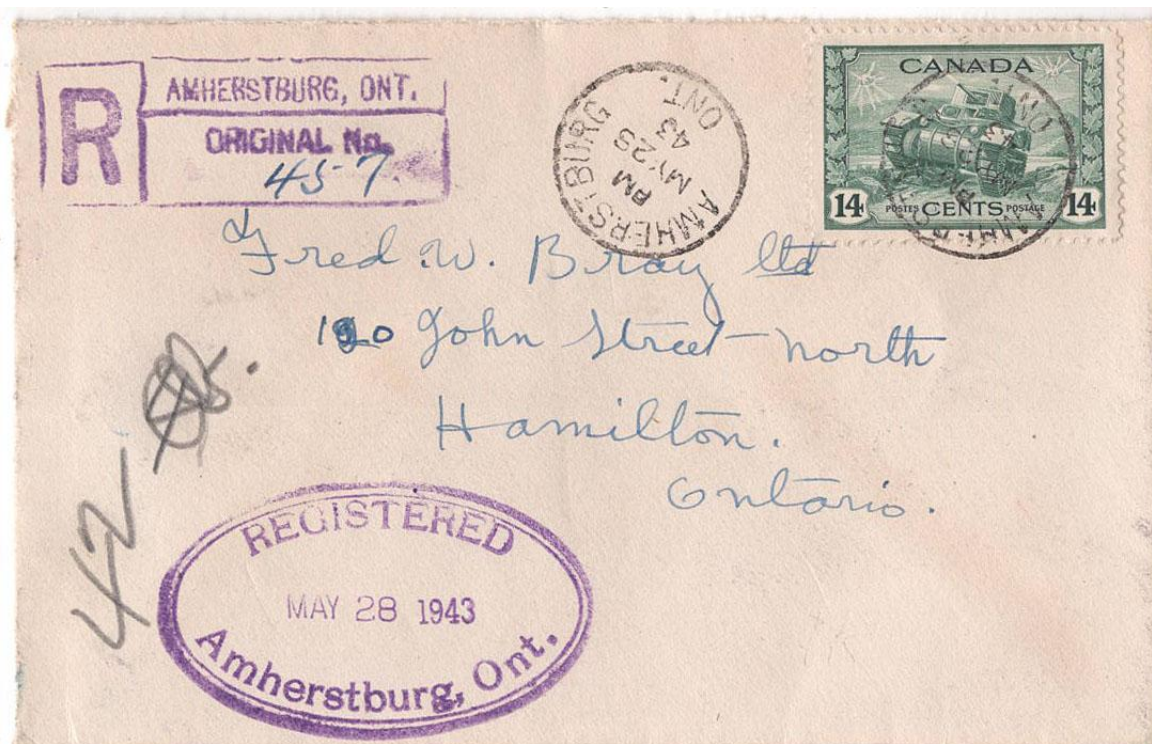 R
AMHERSTBURG, ONT.
ORIGINAL No.
457.
AMHERSTBURG
PM
MY 28
43
ONT.
CANADA
14 POSTES CENTS POSTAGE 14
Fred. W. Bray Ltd
120 John Street North
Hamilton.
Ontario.
42
REGISTERED
MAY 28 1943
Amherstburg, Ont.